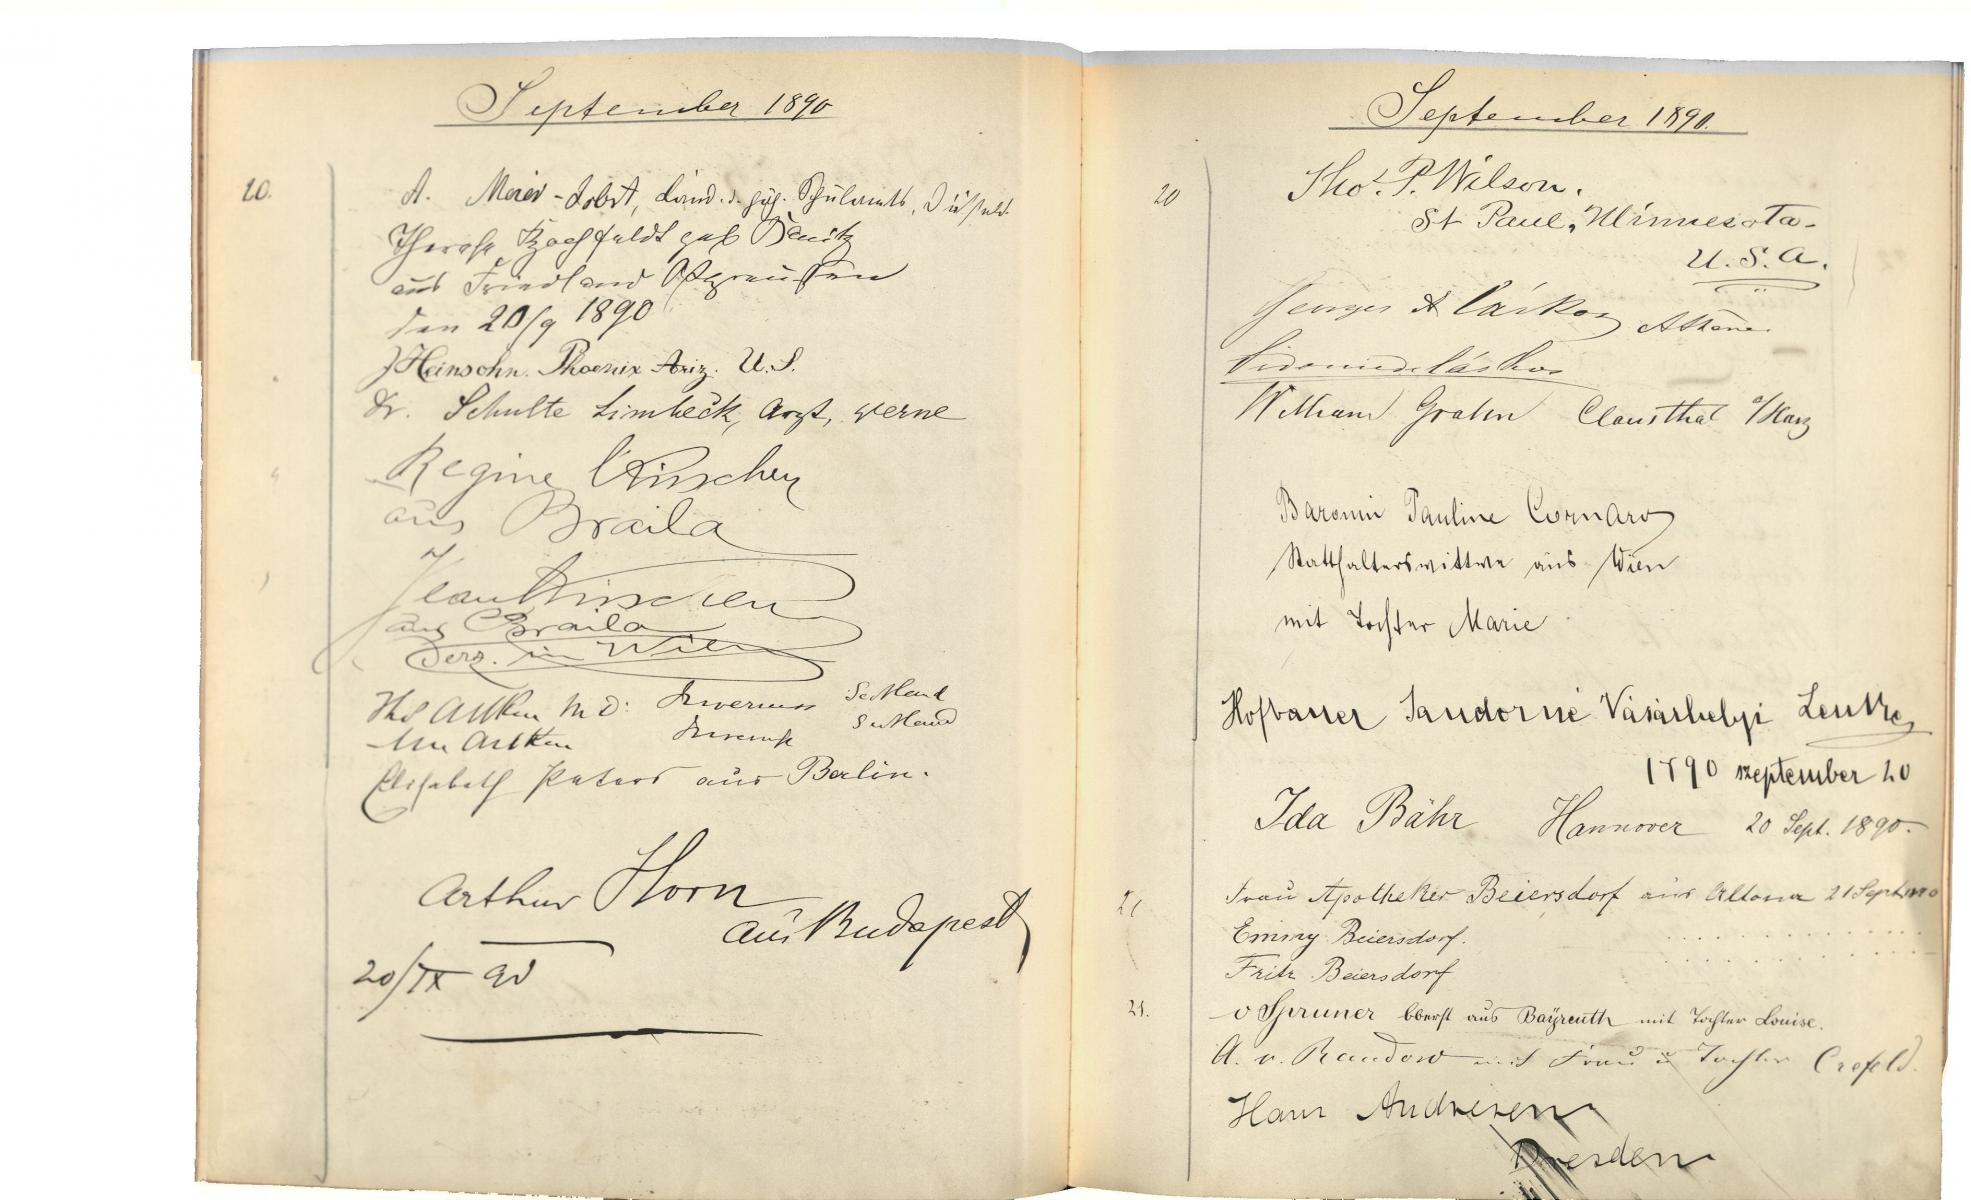 September 1890
20.
A. Meier-Dobst, Cand. d. höh. Schulamts,
Therese geb
aus Friedland Ostpreußen
den 20/9 1890
J Heinsohn. Phoenix Ariz. U.S.
Dr. Schulte Limbeck, Arzt, Werne
Regine
aus Braila
Jean
aus Braila
Derz. in Wien
Aitken M D: Inverness Scotland
Aitken Inverness Scotland
Elisabeth Peters aus Berlin.
Arthur Horn
aus Budapest
20/IX 90
September 1890.
20
Tho. P. Wilson.
St Paul, Minnesota.
U.S.A.
Georges A
William Grahn Clausthal a/Harz
Baronin Pauline Cornaro
Statthalterswittwe aus Wien
mit Tochter Marie
Hofbauer Sandorné Vásárhelyi Lenke
1890 szeptember 20
Ida Bähr Hannover 20 Sept. 1890.
21
Frau Apotheker Beiersdorf aus Altona 21 Sept. 1890
Emmy Beiersdorf.
Fritz Beiersdorf
21.
v Spruner Oberst aus Bayreuth mit Tochter Louise.
A. v. Randow mit Frau u Tochter Crefeld.
Hans Andresen
Dresden